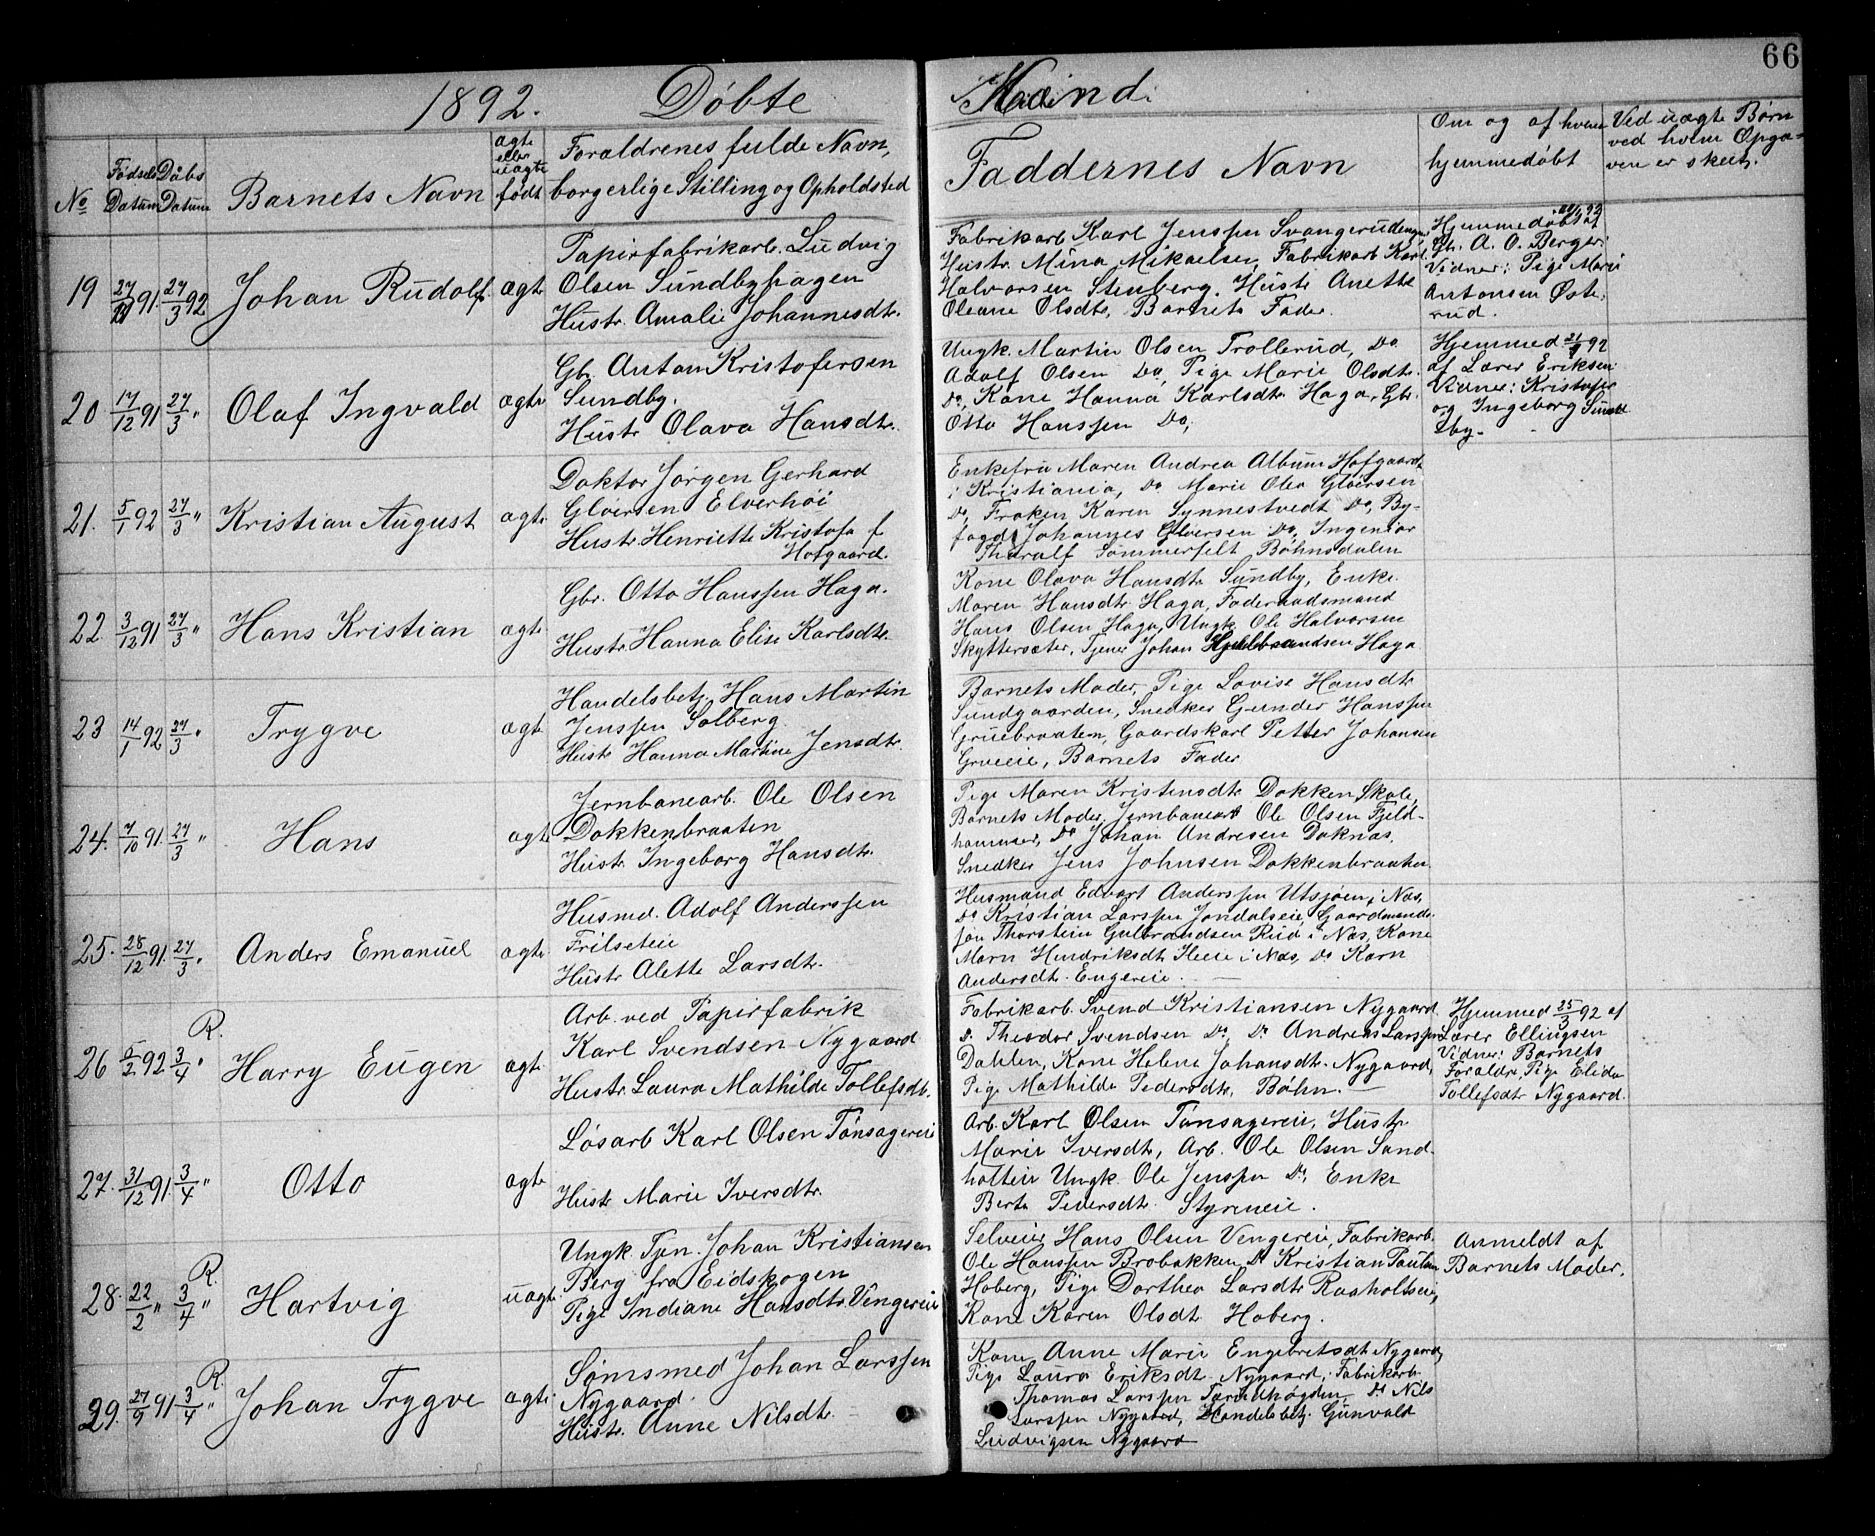 66
1892. Døbte Mænd.
No
Fødsels Datum
Daabs Datum
Barnets Navn
ægte eller uægte født
Forældrenes fulde Navn,
borgerlige Stilling og Opholdsted
Faddernes Navn
Om og af hvem
hjemmedøbt
Ved uægte Børn
ved hvem Opga-
ven er skeet.
19 27/11 91. 27/3 92 Johan Rudolf. ægte
Papirfabrikarb. Ludvig
Olsen Sundbyhagen
Hustr. Amalie Johannesdtr.
Fabrikarb Karl Jenssen Svangerudengen
Hustr. Mina Mikaelsen, Fabrikarb Karl
Halvorsen Stenberg. Hustr Anette
Oleane Olsdtr, Barnets Fader.
Hjemmedøbt af
Gbr. A. O. Berger
Vidner: Pige Marie
Antonsen Øste-
rud.
20 17/12 91 27/3 " Olaf Ingvald ægte
Gbr. Anton Kristofersen
Sundby.
Hustr Olava Hansdtr.
Ungk. Martin Olsen Trollerud, Do
Adolf Olsen Do, Pige Marie Olsdtr.
Do, Kone Hanna Karlsdtr Haga, Gbr.
Otto Hanssen Do,
Hjemmed 21/1 92
af Lærer Eriksen
Vidner: Kristofer
og Ingeborg Sund-
by.
21. 5/1 92 27/3 " Kristian August ægte
Doktor Jørgen Gerhard
Gløersen Elverhøi
Hustr Henriette Kristofa f
Hofgaard.
Enkefru Maren Andrea Album Hofgaard
i Kristiania, Do Marie Olea Gløersen
Do, Frøken Karen Synnestvedt Do, By-
fogd Johannes Gløersen Do, Ingeniør
Tharalf Sommerfelt Bøhnsdalen
22 3/12 91 27/3 " Hans Kristian ægte
Gbr. Otto Hanssen Haga.
Hustr. Hanna Elise Karlsdtr.
Kone Olava Hansdtr Sundby, Enke
Maren Hansdtr Haga, Føderaadsmand
Hans Olsen Haga, Ungk. Ole Halvorsen
Skyttersæter, Tjener Johan Hjulbrandsen Haga
23 14/1 92 27/3 " Trygve ægte
Handelsbetj. Hans Martin
Jenssen Solberg.
Hustr Hanna Martine Jensdtr.
Barnets Moder, Pige Lovise Hansdtr
Sundgaarden, Snedker Gunder Hanssen
Gruebraaten, Gaardskarl Petter Johansen
Grueeie, Barnets Fader
24. 7/10 91. 27/3 " Hans ægte
Jernbanearb. Ole Olsen
Dokkenbraaten
Hustr. Ingeborg Hansdtr.
Pige Maren Kristensdtr Dokken Skole,
Barnets Moder, Jernbanearb Ole Olsen Fjeld-
hammer, Do Johan Andresen Doknæs,
Snedker Jens Johnsen Dokkenbraaten
25. 28/12 91. 27/3 " Anders Emanuel ægte
Husmd. Adolf Anderssen
Frilseteie
Hustr Alette Larsdtr.
Husmand Edvart Anderssen Utsjøen, i Næs,
Do Kristian Larssen Jondalseie, Gaardmands-
søn Thorstein Gulbrandsen Rud i Næs, Kone
Marn Hendriksdtr Heeie i Næs, Do Karn
Andersdtr Engereie.
R.
26 5/2 92 3/4 " Harry Eugen ægte
Arb. ved Papirfabrik
Karl Svendsen Nygaard
Hustr. Laura Mathilde Tollefsdtr.
Fabrikarb. Svend Kristiansen Nygaard
Do Theodor Svendsen Do, Do Andreas Larssen
Dahlen, Kone Helene Johansdtr. Nygaard,
Pige Mathilde Pedersdtr, Bøhn.
Hjemmed 25/3 92 af
Lærer Ellingsen
Vidner: Barnets
Foraldre, Pige Elida
Tollefsdtr Nygaard.
27. 31/12 91. 3/4 " Otto ægte
Løsarb Karl Olsen Tønsagereie
Hustr Marie Iversdtr.
Arb. Karl Olsen Tønsagereie, Hustr
Marie Iversdtr, Arb. Ole Olsen Sand-
holteie Ungk. Ole Jenssen Do, Enke
Berte Pedersdtr. Styrieie.
R.
28. 22/2 " 3/4 " Hartvig uægte
Ungk. Tjn. Johan Kristiansen
Berg fra Eidskogen
Pige Indiane Hansdtr. Vengereie
Selveier Hans Olsen Vengereie, Fabrikarb.
Ole Hanssen Brobakken, Do Kristian Paulsen
Hoberg, Pige Dorthea Larsdtr Raaholtseie,
Kone Karen Olsdtr Hoberg.
Anmeldt af
Barnets Moder.
R.
29. 27/9 91 3/4 " Johan Trygve ægte
Sømsmed Johan Larssen
Nygaard.
Hustr. Anne Nilsdtr.
Kone Anne Marie Engebretsdtr Nygaard,
Pige Laura Eriksdtr. Nygaard, Fabrikarb.
Thomas Larssen Do Nils
Larssen Nygaard, Handelsbetj. Gunvald
Ludvigsen Nygaard